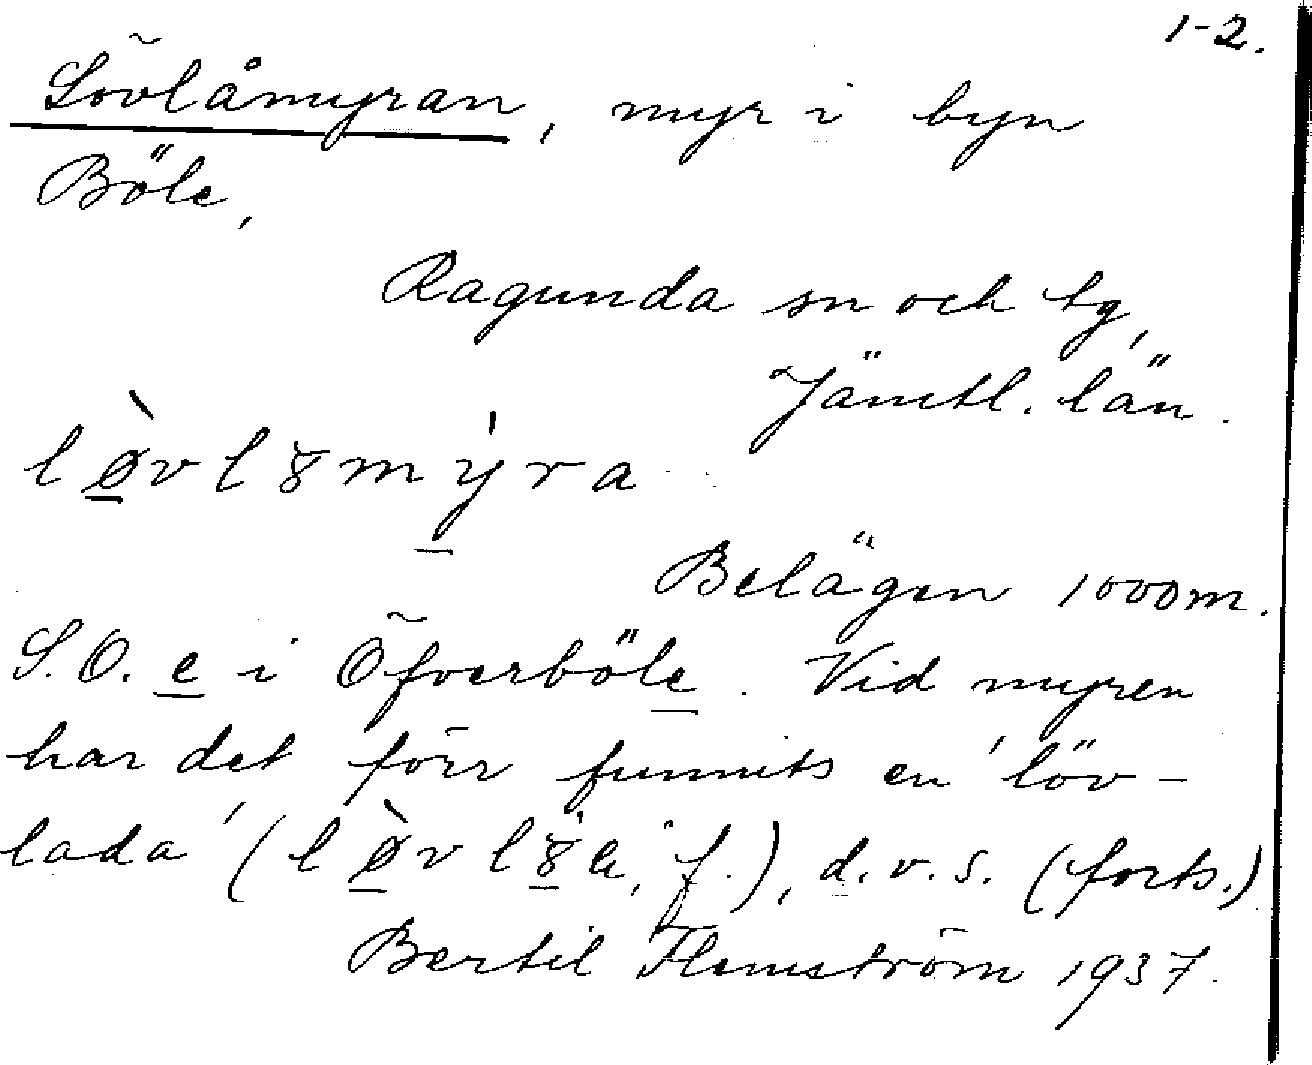 1-2.
Lövlåmyran, myr i byn
Böle,
Ragunda sn och tg,
Jämtl. län.
lø̀vlȣmýra
Belägen 1000m.
S.O. e i Öfverböle. Vid myren
har det förr funnits en 'löv-
lada' (lø̀vlȣ́a, f.), d.v.s. (forts.)
Bertil Flemström 1937.